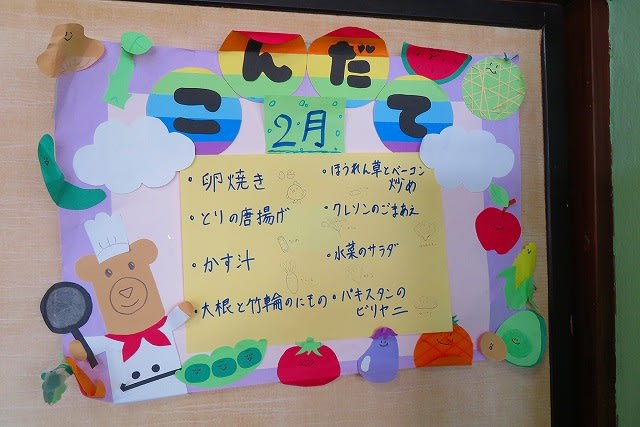 こんだて
2月
・卵焼き
・とりの唐揚げ
・かす汁
・大根と竹輪のにもの
・ほうれん草とベーコン
炒め
・クレソンのごまあえ
・水菜のサラダ
・パキスタンの
ビリヤニ